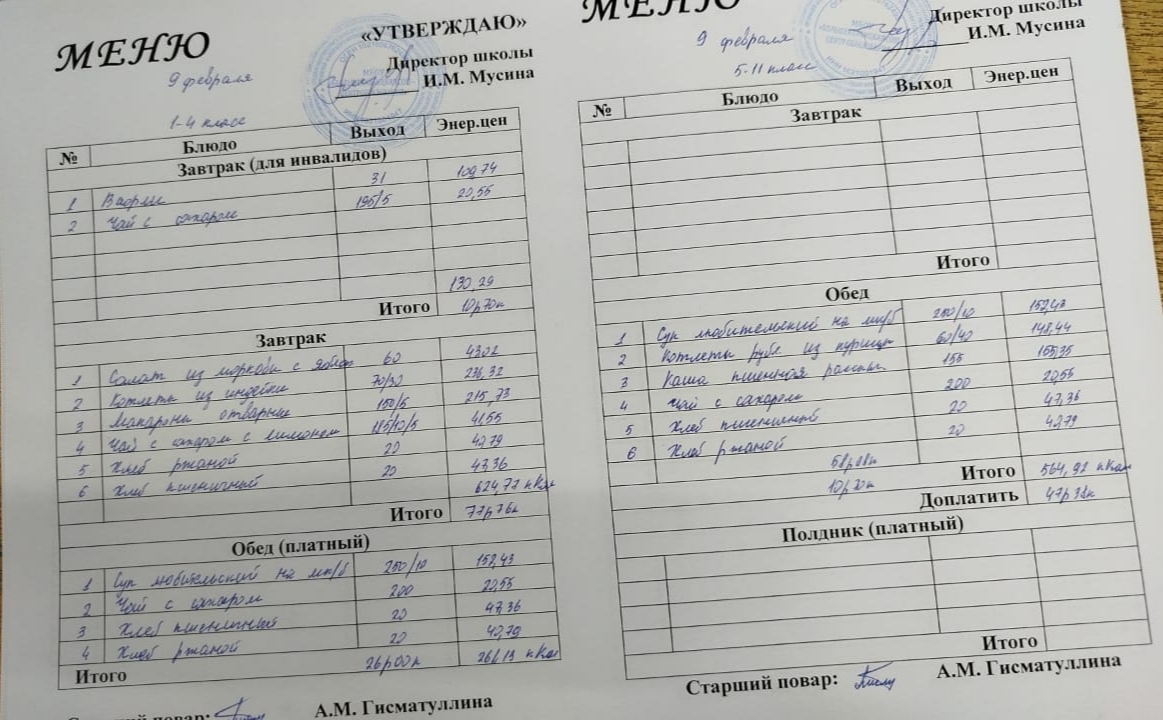 МЕНЮ
«УТВЕРЖДАЮ»
Директор школы
И.М. Мусина
9 февраля
1-4 класс
№ Блюдо Выход Энер.цен
Завтрак (для инвалидов)
1 Вафли 31 109,74
2 Чай с сахаром 195/5 20,55
130,29
Итого 10р70к
Завтрак
1 Салат из моркови с яблок 60 43,02
2 Котлеты из индейки 70/30 236,32
3 Макароны отварные 150/5 215,73
4 Чай с сахаром с лимоном 185/10/5 41,55
5 Хлеб ржаной 20 40,79
6 Хлеб пшеничный 20 47,36
624,77 кКал
Итого 77р76к
Обед (платный)
1 Суп любительский на мк/б 250/10 152,43
2 Чай с сахаром 200 20,55
3 Хлеб пшеничный 20 47,36
4 Хлеб ржаной 20 40,79
Итого 26р00к 261,13 кКал
Старший повар:
А.М. Гисматуллина
МЕНЮ
Директор школы
И.М. Мусина
9 февраля
5-11 класс
№ Блюдо Выход Энер.цен
Завтрак
Итого
Обед
1 Суп любительский на мк/б 250/10 152,43
2 Котлеты рубл. из курицы 60/40 148,44
3 Каша пшенная рассып. 155 155,35
4 Чай с сахаром 200 20,55
5 Хлеб пшеничный 20 47,36
6 Хлеб ржаной 20 40,79
58р08к
Итого 564,92 кКал
10р70к
Доплатить 47р38к
Полдник (платный)
Итого
Старший повар:
А.М. Гисматуллина